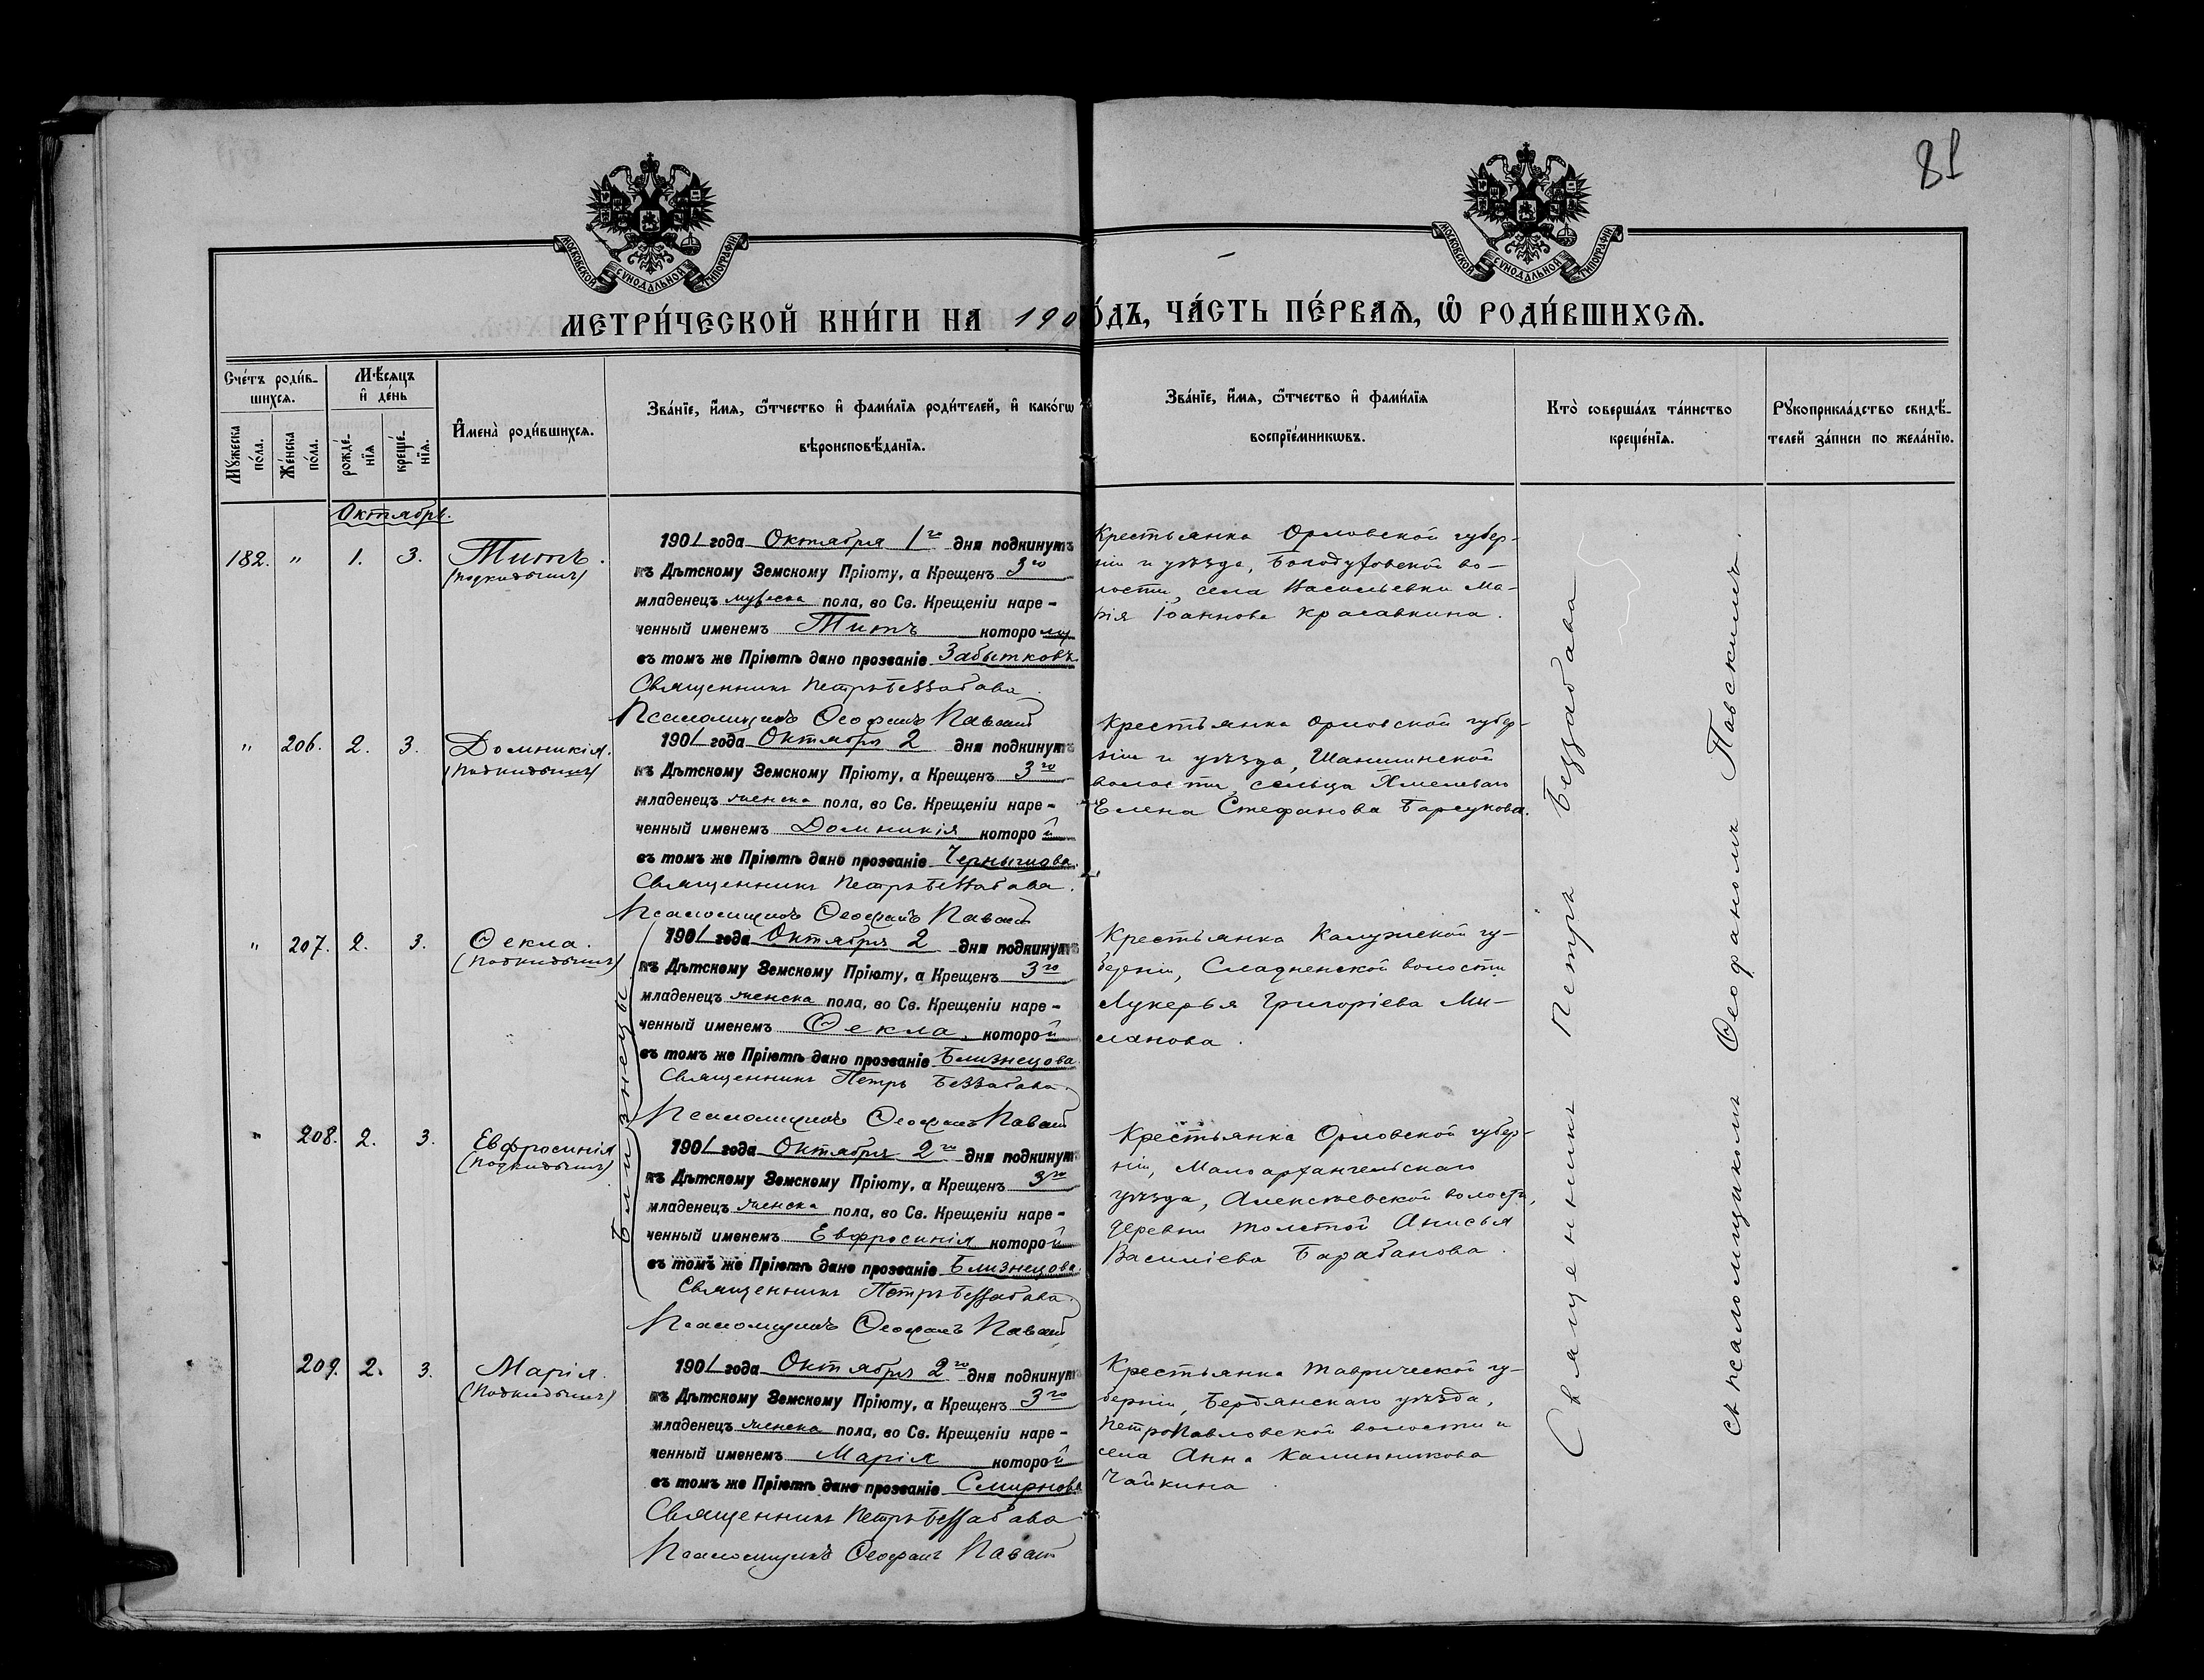 81
МОСКОВСКОЙ СУНОДАЛЬНОЙ ТИПОГРАФІИ
МОСКОВСКОЙ СУНОДАЛЬНОЙ ТИПОГРАФІИ
МЕТРИ́ЧЕСКОЙ КНИ́ГИ НА 190
О́ДЪ, ЧА́СТЬ ПЕ́РВАѦ, Ѡ҆ РОДИ́ВШИХСѦ.
Сче́тъ роди́в-
шихсѧ.
Мꙋ́жеска
по́ла.
Же́нска
по́ла.
Мѣ́сѧцъ
и҆ де́нь
рожде́-
нїѧ
креще́-
нїѧ.
И҆мена̀ роди́вшихсѧ.
Зва́нїе, и҆́мѧ, ѻ҆́тчество и҆ фами́лїѧ роди́телей, и҆ како́гѡ
вѣроисповѣ́данїѧ.
Зва́нїе, и҆́мѧ, ѻ҆́тчество и҆ фами́лїѧ
воспрїе́мникѡвъ.
Кто̀ соверша́лъ та́инство
креще́нїѧ.
Рꙋкоприкла́дство свидѣ́-
телей за́писи по жела́нїю.
Октябрь.
182. " 1. 3. Титъ.
(подкидышъ)
1901 года Октября 1го дня подкинутъ
къ Дѣтскому Земскому Пріюту, а Крещенъ 3го
младенецъ мужеска пола, во Св. Крещеніи наре-
ченный именемъ Титъ которому
въ томъ же Пріютѣ дано прозваніе Забытковъ
Священникъ Петръ Беззабава.
Псаломщикъ Ѳеофанъ Павскій
Крестьянка Орловской губер-
ніи и уѣзда, Богодуховской во-
лости, села Васильевки Ма-
рія Іоаннова Красавкина.
" 206. 2. 3. Домникія.
(Подкидышъ)
1901 года Октября 2 дня подкинутъ
къ Дѣтскому Земскому Пріюту, а Крещенъ 3го
младенецъ женска пола, во Св. Крещеніи наре-
ченный именемъ Домникія которой
въ томъ же Пріютѣ дано прозваніе Чернышова.
Священникъ Петръ Беззабава.
Псаломщикъ Ѳеофанъ Павскій
Крестьянка Орловской губер-
ніи и уѣзда, волости, сельца
Елена Стефанова Барсукова.
" 207. 2. 3. Ѳекла.
(Подкидышъ)
Близнецы
1901 года Октября 2 дня подкинутъ
къ Дѣтскому Земскому Пріюту, а Крещенъ 3го
младенецъ женска пола, во Св. Крещеніи наре-
ченный именемъ Ѳекла, которой
въ томъ же Пріютѣ дано прозваніе Близнецова
Священникъ Петръ Беззабава.
Псаломщикъ Ѳеофанъ Павскій
Крестьянка Калужской гу-
берніи, волости
Лукерья Григоріева Ми-
ланова.
" 208. 2. 3. Евфросинія
(подкидышъ)
1901 года Октября 2го дня подкинутъ
къ Дѣтскому Земскому Пріюту, а Крещенъ 3го
младенецъ женска пола, во Св. Крещеніи наре-
ченный именемъ Евфросинія которой
въ томъ же Пріютѣ дано прозваніе Близнецова.
Священникъ Петръ Беззабава.
Псаломщикъ Ѳеофанъ Павскій
Крестьянка Орловской губер-
ніи, Малоархангельскаго
уѣзда, Алексѣевской волости,
деревни Толстой Анисья
Василіева Барабанова.
209. 2. 3. Марія.
(Подкидышъ)
1901 года Октября 2го дня подкинутъ
къ Дѣтскому Земскому Пріюту, а Крещенъ 3го
младенецъ женска пола, во Св. Крещеніи наре-
ченный именемъ Марія которой
въ томъ же Пріютѣ дано прозваніе Смирнова
Священникъ Петръ Беззабава
Псаломщикъ Ѳеофанъ Павскій
Крестьянка Таврической гу-
берніи, Бердянскаго уѣзда,
Петропавловской волости и
села Анна Калинникова
Чайкина.
Священникъ Петръ Беззабава
съ псаломщикомъ Ѳеофаномъ Павскимъ.